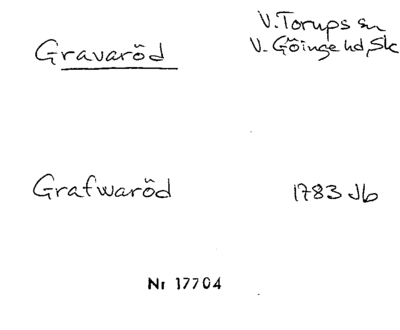 Gravaröd
V. Torups sn
V. Göinge hd, Sk
Grafwaröd
1783 Jb
Nr 17704